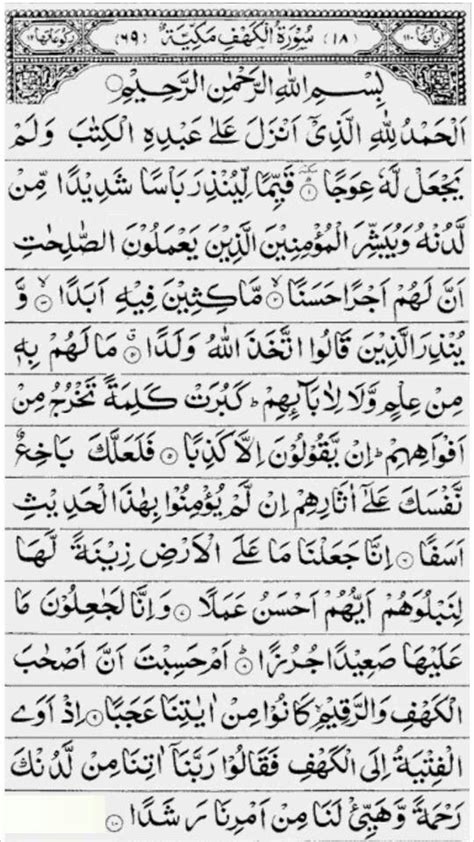 اٰیاتها ۱۱۰ (۱۸) سُوْرَةُ الْكَهْفِ مَكِّيَّةٌ (۶۹) رکوعاتها ۱۲
بِسْمِ اللهِ الرَّحْمٰنِ الرَّحِيْمِ ○
اَلْحَمْدُ لِلّٰهِ الَّذِيْۤ اَنْزَلَ عَلٰى عَبْدِهِ الْكِتٰبَ وَلَمْ
يَجْعَلْ لَّهٗ عِوَجًا ۱ قَيِّمًا لِّيُنْذِرَ بَاْسًا شَدِيْدًا مِّنْ
لَّدُنْهُ وَيُبَشِّرَ الْمُؤْمِنِيْنَ الَّذِيْنَ يَعْمَلُوْنَ الصّٰلِحٰتِ
اَنَّ لَهُمْ اَجْرًا حَسَنًا ۲ مَّاكِثِيْنَ فِيْهِ اَبَدًا ۳ وَّ
يُنْذِرَ الَّذِيْنَ قَالُوا اتَّخَذَ اللهُ وَلَدًا ۴ مَا لَهُمْ بِهٖ
مِنْ عِلْمٍ وَّلَا لِاٰبَآئِهِمْ ؕ كَبُرَتْ كَلِمَةً تَخْرُجُ مِنْ
اَفْوَاهِهِمْ ؕ اِنْ يَّقُوْلُوْنَ اِلَّا كَذِبًا ۵ فَلَعَلَّكَ بَاخِعٌ
نَّفْسَكَ عَلٰۤى اٰثَارِهِمْ اِنْ لَّمْ يُؤْمِنُوْا بِهٰذَا الْحَدِيْثِ
اَسَفًا ۶ اِنَّا جَعَلْنَا مَا عَلَى الْاَرْضِ زِيْنَةً لَّهَا
لِنَبْلُوَهُمْ اَيُّهُمْ اَحْسَنُ عَمَلًا ۷ وَاِنَّا لَجٰعِلُوْنَ مَا
عَلَيْهَا صَعِيْدًا جُرُزًا ۸ اَمْ حَسِبْتَ اَنَّ اَصْحٰبَ
الْكَهْفِ وَالرَّقِيْمِ كَانُوْا مِنْ اٰيٰتِنَا عَجَبًا ۹ اِذْ اَوَى
الْفِتْيَةُ اِلَى الْكَهْفِ فَقَالُوْا رَبَّنَاۤ اٰتِنَا مِنْ لَّدُنْكَ
رَحْمَةً وَّهَيِّئْ لَنَا مِنْ اَمْرِنَا رَشَدًا ۱۰